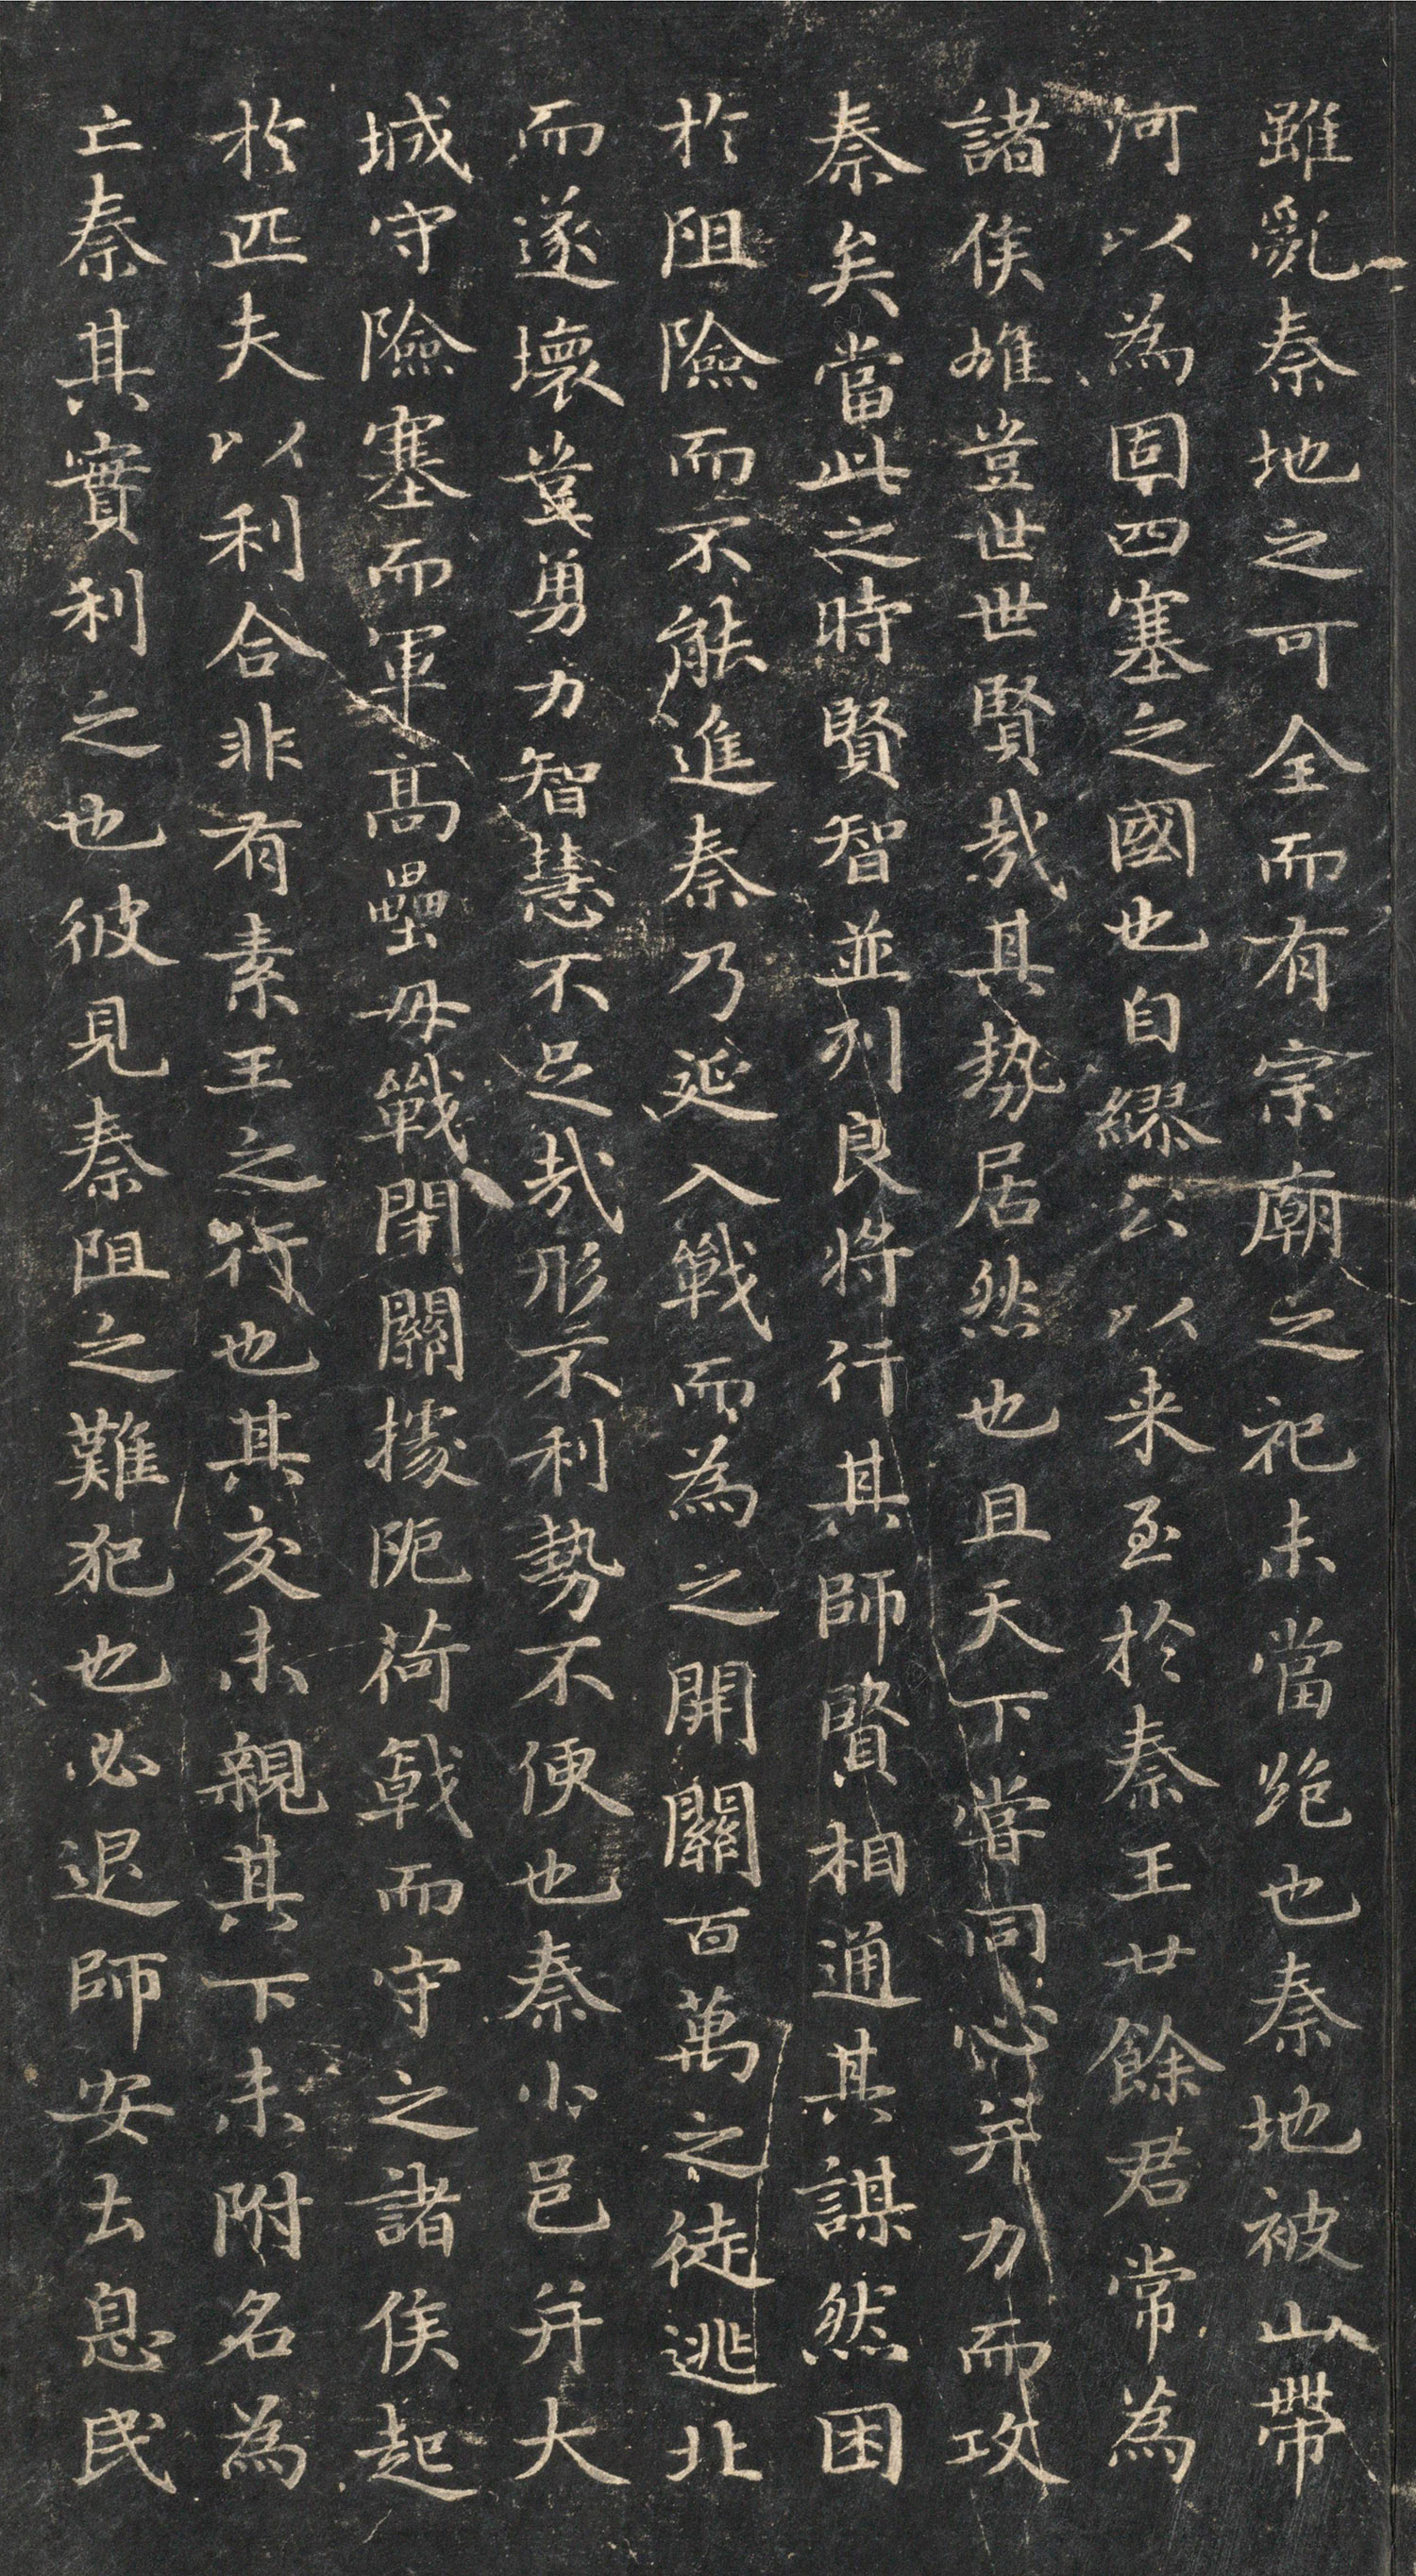 雖亂秦地之可全而有宗廟之祀未當絕也秦地被山帶
河以為固四塞之國也自繆公以来至於秦王廿餘君常為
諸侯雄豈世世賢哉其势居然也且天下嘗同心并力而攻
秦矣當此之時賢智並列良將行其師賢相通其謀然困
於阻險而不能進秦乃延入戰而為之開關百萬之徒逃北
而遂壞豈勇力智慧不足哉形不利勢不便也秦小邑并大
城守險塞而軍高壘毋戰閉關據阨荷戟而守之諸侯起
於匹夫以利合非有素王之行也其交未親其下未附名為
亡秦其實利之也彼見秦阻之難犯也必退師安土息民